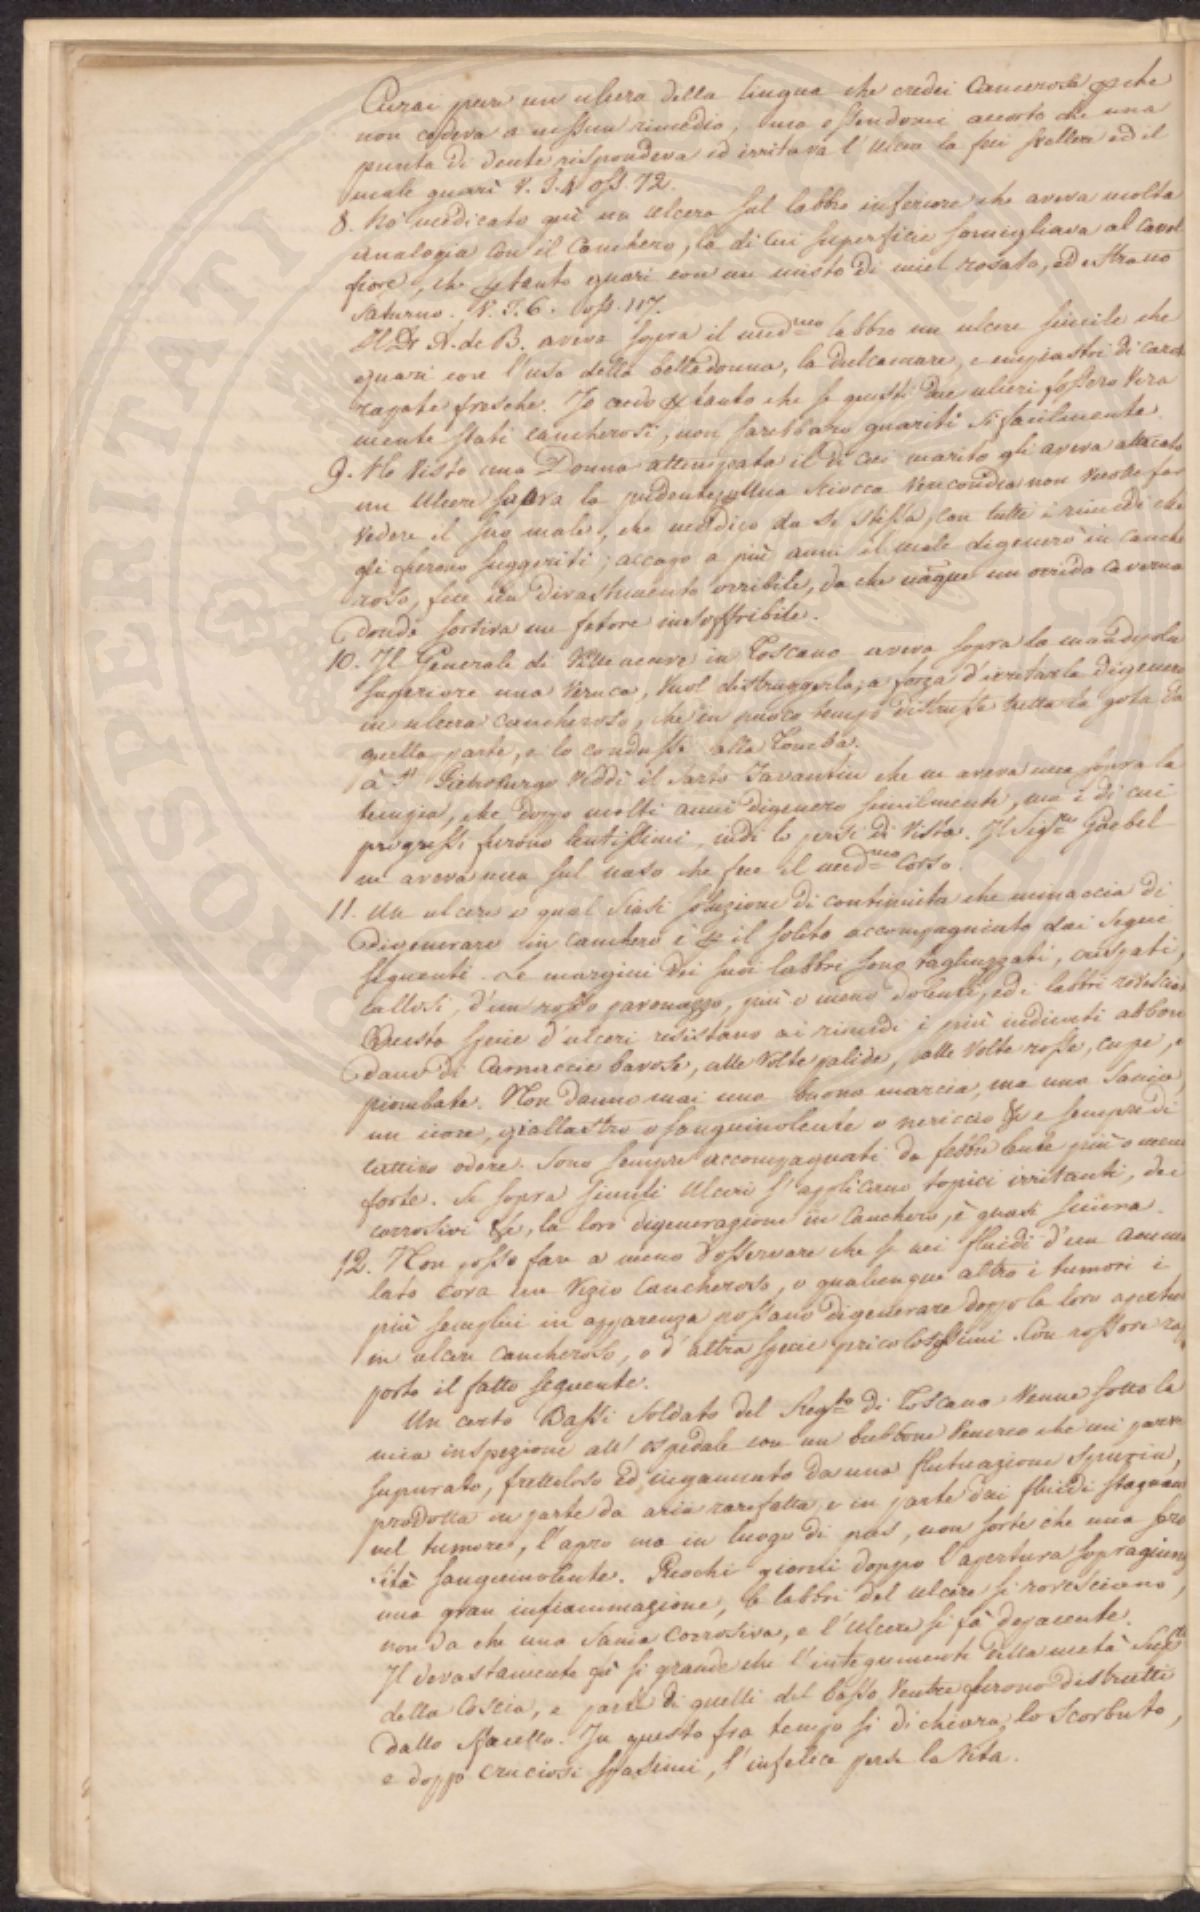 Curai pure un ulcera della lingua che credei Cancerosa che
non cedeva a nessun rimedio, ma essendomi accorto che una
punta di dente rispondeva ed irritava l'ulcera la feci svellere ed il
male guarì V. T. 4 oss. 72.
8. Ho medicato quì un ulcera sul labbro inferiore che aveva molta
analogia con il Canchero, la di cui superficie somigliava al Cavol
fiore, che tanto guarì con un misto di miel rosato, ed estratto
Saturno. V. T. 6. oss. 117.
Il Dr A. de B. aveva sopra il medmo labbro un ulcere simile che
guarì con l'uso della belladonna, la dulcamare, e empiastri di caro
fresche. Io credo tanto che se questi due ulceri fossero vera
mente stati cancherosi, non sarebbaro guariti sì facilmente.
9. Ho visto una Donna attempata il di cui marito gli aveva attacato
un Ulcere sopra la sciocca verecondia non volle far
vedere il suo male, che medicò da se stessa, con tutti i rimedi che
gli furono suggeriti; accapo a più anni il male digenerò in canche
roso, fece un divastamento orribile, da che nacque un orrida caverna
donde sortiva un fetore insoffribile.
10. Il Generale di in Toscana aveva sopra la mandipola
superiore una Veruca, vuol distruggerla; a forza d'irritarla digenerò
in ulcera cancherosa, che in puoco tempo distrusse tutta la gota da
quella parte, e lo condusse alla Tomba.
à St Pietroburgo Viddi il Sarto Tavantin che ne aveva una sopra la
tempia, che doppo molti anni digenerò similmente, ma i di cui
progressi furono lentissimi, indi lo persi di Vista. Il Sigre Goebel
ne aveva una sul naso che fece il medmo Corso.
11. Un ulcere o qual siasi soluzione di continuita che minaccia di
divenerare in canchero è il solito accompagniato dai segni
seguenti. Le margini dei suoi labbri sono tagliuzzati, crespati,
callosi, d'un rosso pavonazzo, più o meno dolenti, ed i labbri rovescia
Questa specie d'ulceri resistano ai rimedi i più indicati abbon
dano di Carnaccie bavose, alle Volte palide, alle Volte rosse, cupe, e
piombate. Non danno mai una buona marcia, ma una Sania,
un icore, giallastro o sanguinolente o nericcio & e sempre di
cattivo odore. Sono sempre accompagnati da febbre lenta più o meno
forte. Se sopra simili Ulceri s'applicano topici irritanti, dei
corrosivi &c, la loro digenerazione in Canchero, è quasi sicura.
12. Non posso fare a meno d'osservare che se nei fluidi d'un amma
lato cova un Vizio Cancheroso, o qualunque altro i tumori i
più semplici in apparenza possano digenerare doppo la loro apertu
in ulcere cancheroso, o d'altra specie pricolosissimi. Con rossore ra
porto il fatto seguente.
Un certo Bassi Soldato del Regto di Toscana Venne sotto la
mia inspezione all'ospedale con un bubbone Venereo che mi parve
supurato, frettoloso ed ingannato da una flutuazione Spuria,
prodotta in parte da aria rarefatta e in parte dai fluidi stagnan
nel tumore, l'apro ma in luogo di pus, non sortì che una siro
sità sanguinolente. Puochi giorni doppo l'apertura sopragiun
una gran infiammazione, le labbri del ulcere si rovesciano,
non da che una Sania Corrosiva, e l'Ulcere si fà depascente.
Il devastamento fù sì grande che l'integumenti della metà Supre
della Coscia, e parte di quelli del basso Ventre furono distrutti
dallo sfacello. In questo fra tempo si dichiara lo Scorbuto,
e doppo cruciosi spasimi, l'infelice perse la Vita.